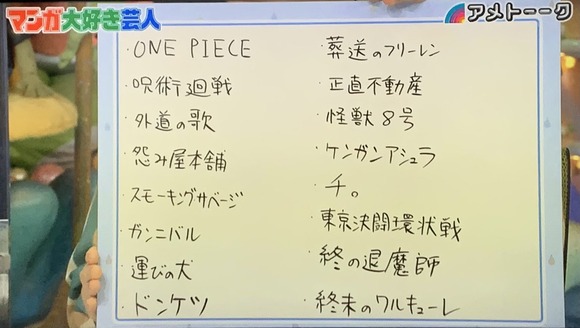 マンガ大好き芸人
アメトーーク
・ONE PIECE
・呪術廻戦
・外道の歌
・怨み屋本舗
・スモーキングサベージ
・ガンニバル
・運びの犬
・ドンケツ
・葬送のフリーレン
・正直不動産
・怪獣8号
・ケンガンアシュラ
・チ。
・東京決闘環状戦
・終の退魔師
・終末のワルキューレ